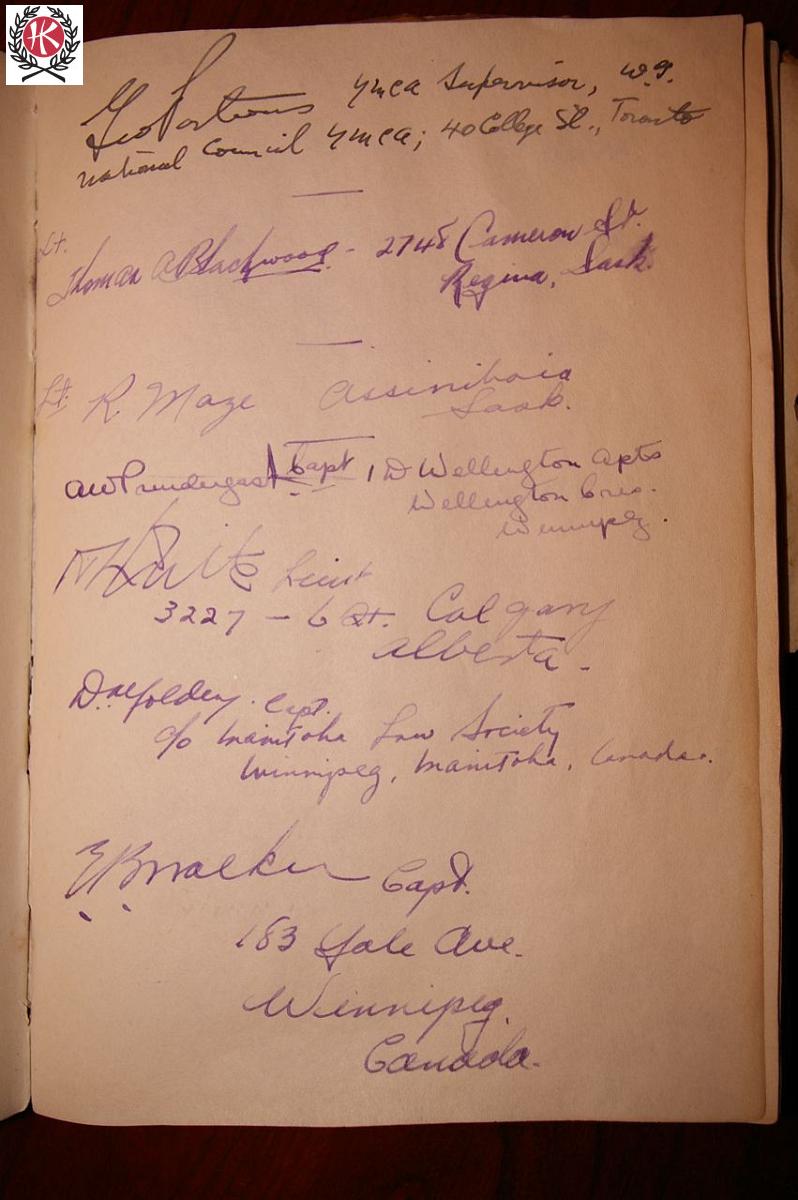 HK
Geo Porteous YMCA Supervisor, W.G.
National Council YMCA; 40 College St., Toronto
Lt.
Thomas A Blackwood - 2748 Cameron St.
Regina, Sask.
Lt. R Maze Assiniboia
Sask.
AW Prendergast Capt 1 D Wellington Apts
Wellington Cres.
Winnipeg.
Lieut
3227 - 6 St. Calgary
Alberta -
Capt.
c/o Manitoba Law Society
Winnipeg, Manitoba, Canada.
Walker Capt.
183 Yale Ave.
Winnipeg.
Canada.